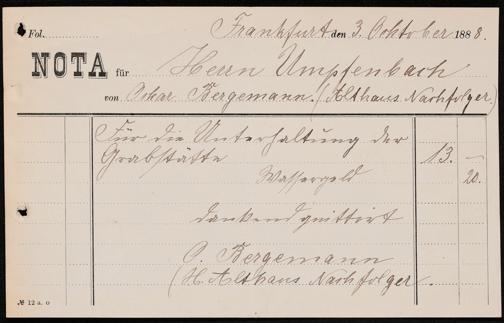 Fol.
Frankfurt den 3. Ocktober 1888.
NOTA für Herrn Umpfenbach
von Oskar Bergemann. (Althaus Nachfolger)
Für die Unterhaltung der
Grabstätte 13. —
Wassergeld 20.
dankend quittirt
O. Bergemann
(H. Althaus Nachfolger.
№ 12 a. o